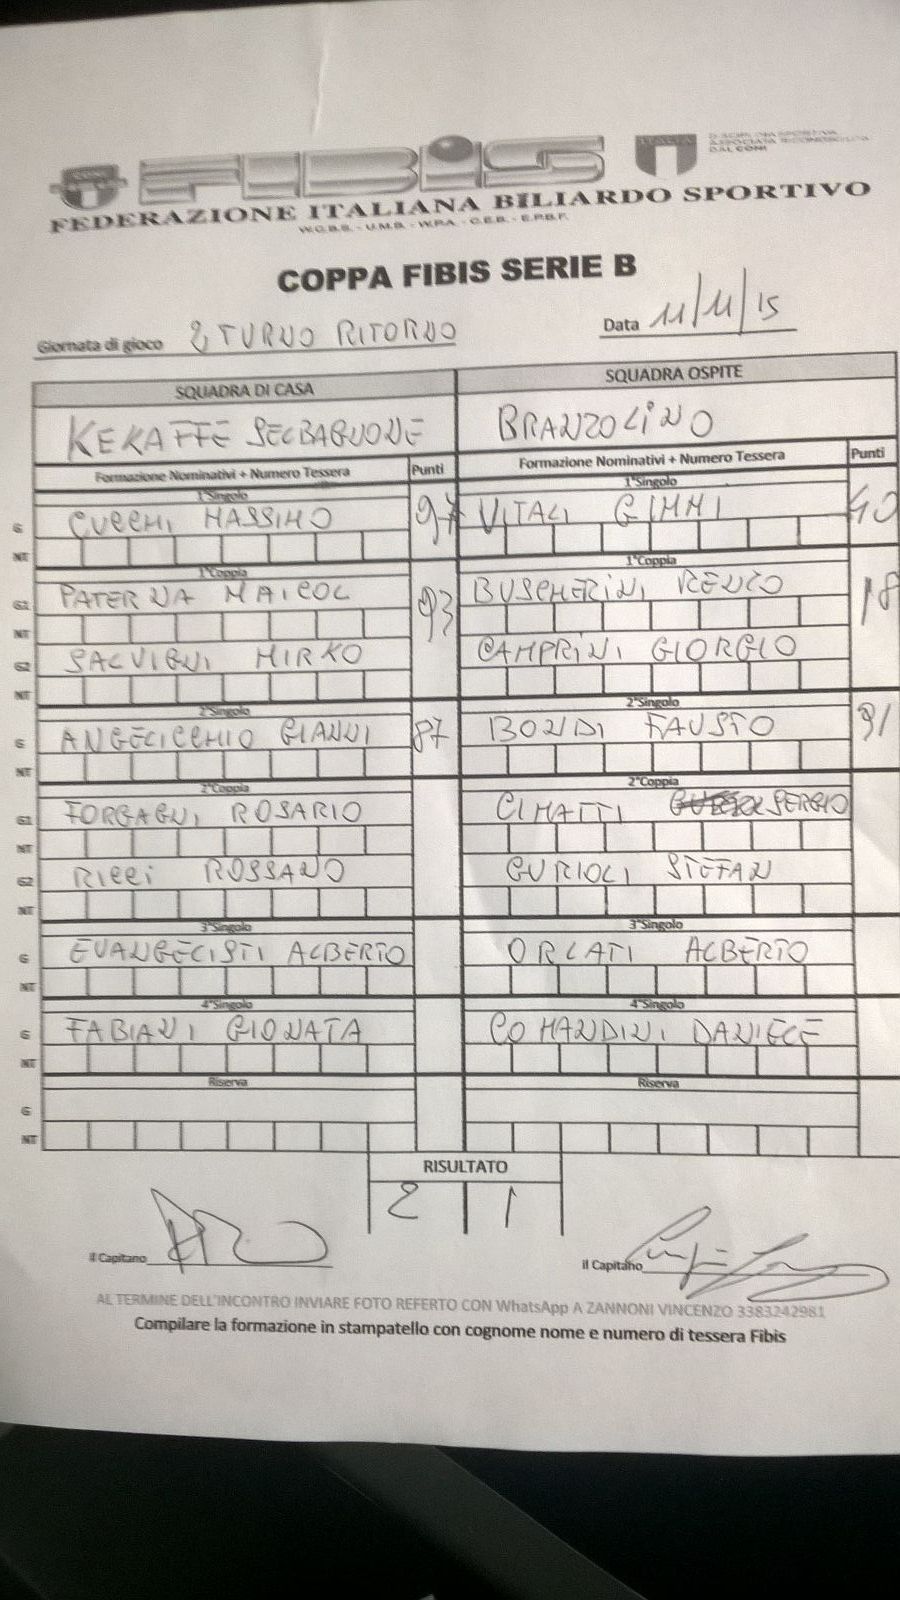 FIBiS
ITALIA
DISCIPLINA SPORTIVA
ASSOCIATA RICONOSCIUTA
DAL CONI
FEDERAZIONE ITALIANA BILIARDO SPORTIVO
W.C.B.S. - U.M.B. - W.P.A. - C.E.B. - E.P.B.F.
COPPA FIBIS SERIE B
Giornata di gioco 2 TURNO RITORNO Data 11/11/15
SQUADRA DI CASA SQUADRA OSPITE
KEKAFFE SELBAGNONE BRANZOLiNO
Formazione Nominativi + Numero Tessera Punti Formazione Nominativi + Numero Tessera Punti
1°Singolo 1°Singolo
G CUCCHI MASSIMO 97 VITALI GIMMI 40
NT
1°Coppia 1°Coppia
G1 PATERNA MAICOL 93 BUSCHERINI RENZO 18
NT
G2 SALVIGNI MIRKO CAMPRINI GIORGIO
NT
2°Singolo 2°Singolo
G ANGELICCHIO GIANNI 87 BONDI FAUSTO 91
NT
2°Coppia 2°Coppia
G1 FORGAGNI ROSARIO CIMATTI SERGIO
NT
G2 RICCI ROSSANO GURIOLI STEFAN
NT
3°Singolo 3°Singolo
G EVANGELISTI ALBERTO ORLATI ALBERTO
NT
4°Singolo 4°Singolo
G FABIANI GIONATA COMANDINI DANIELE
NT
Riserva Riserva
G
NT
RISULTATO
2 1
Il Capitano il Capitano
AL TERMINE DELL'INCONTRO INVIARE FOTO REFERTO CON WhatsApp A ZANNONI VINCENZO 3383242981
Compilare la formazione in stampatello con cognome nome e numero di tessera Fibis